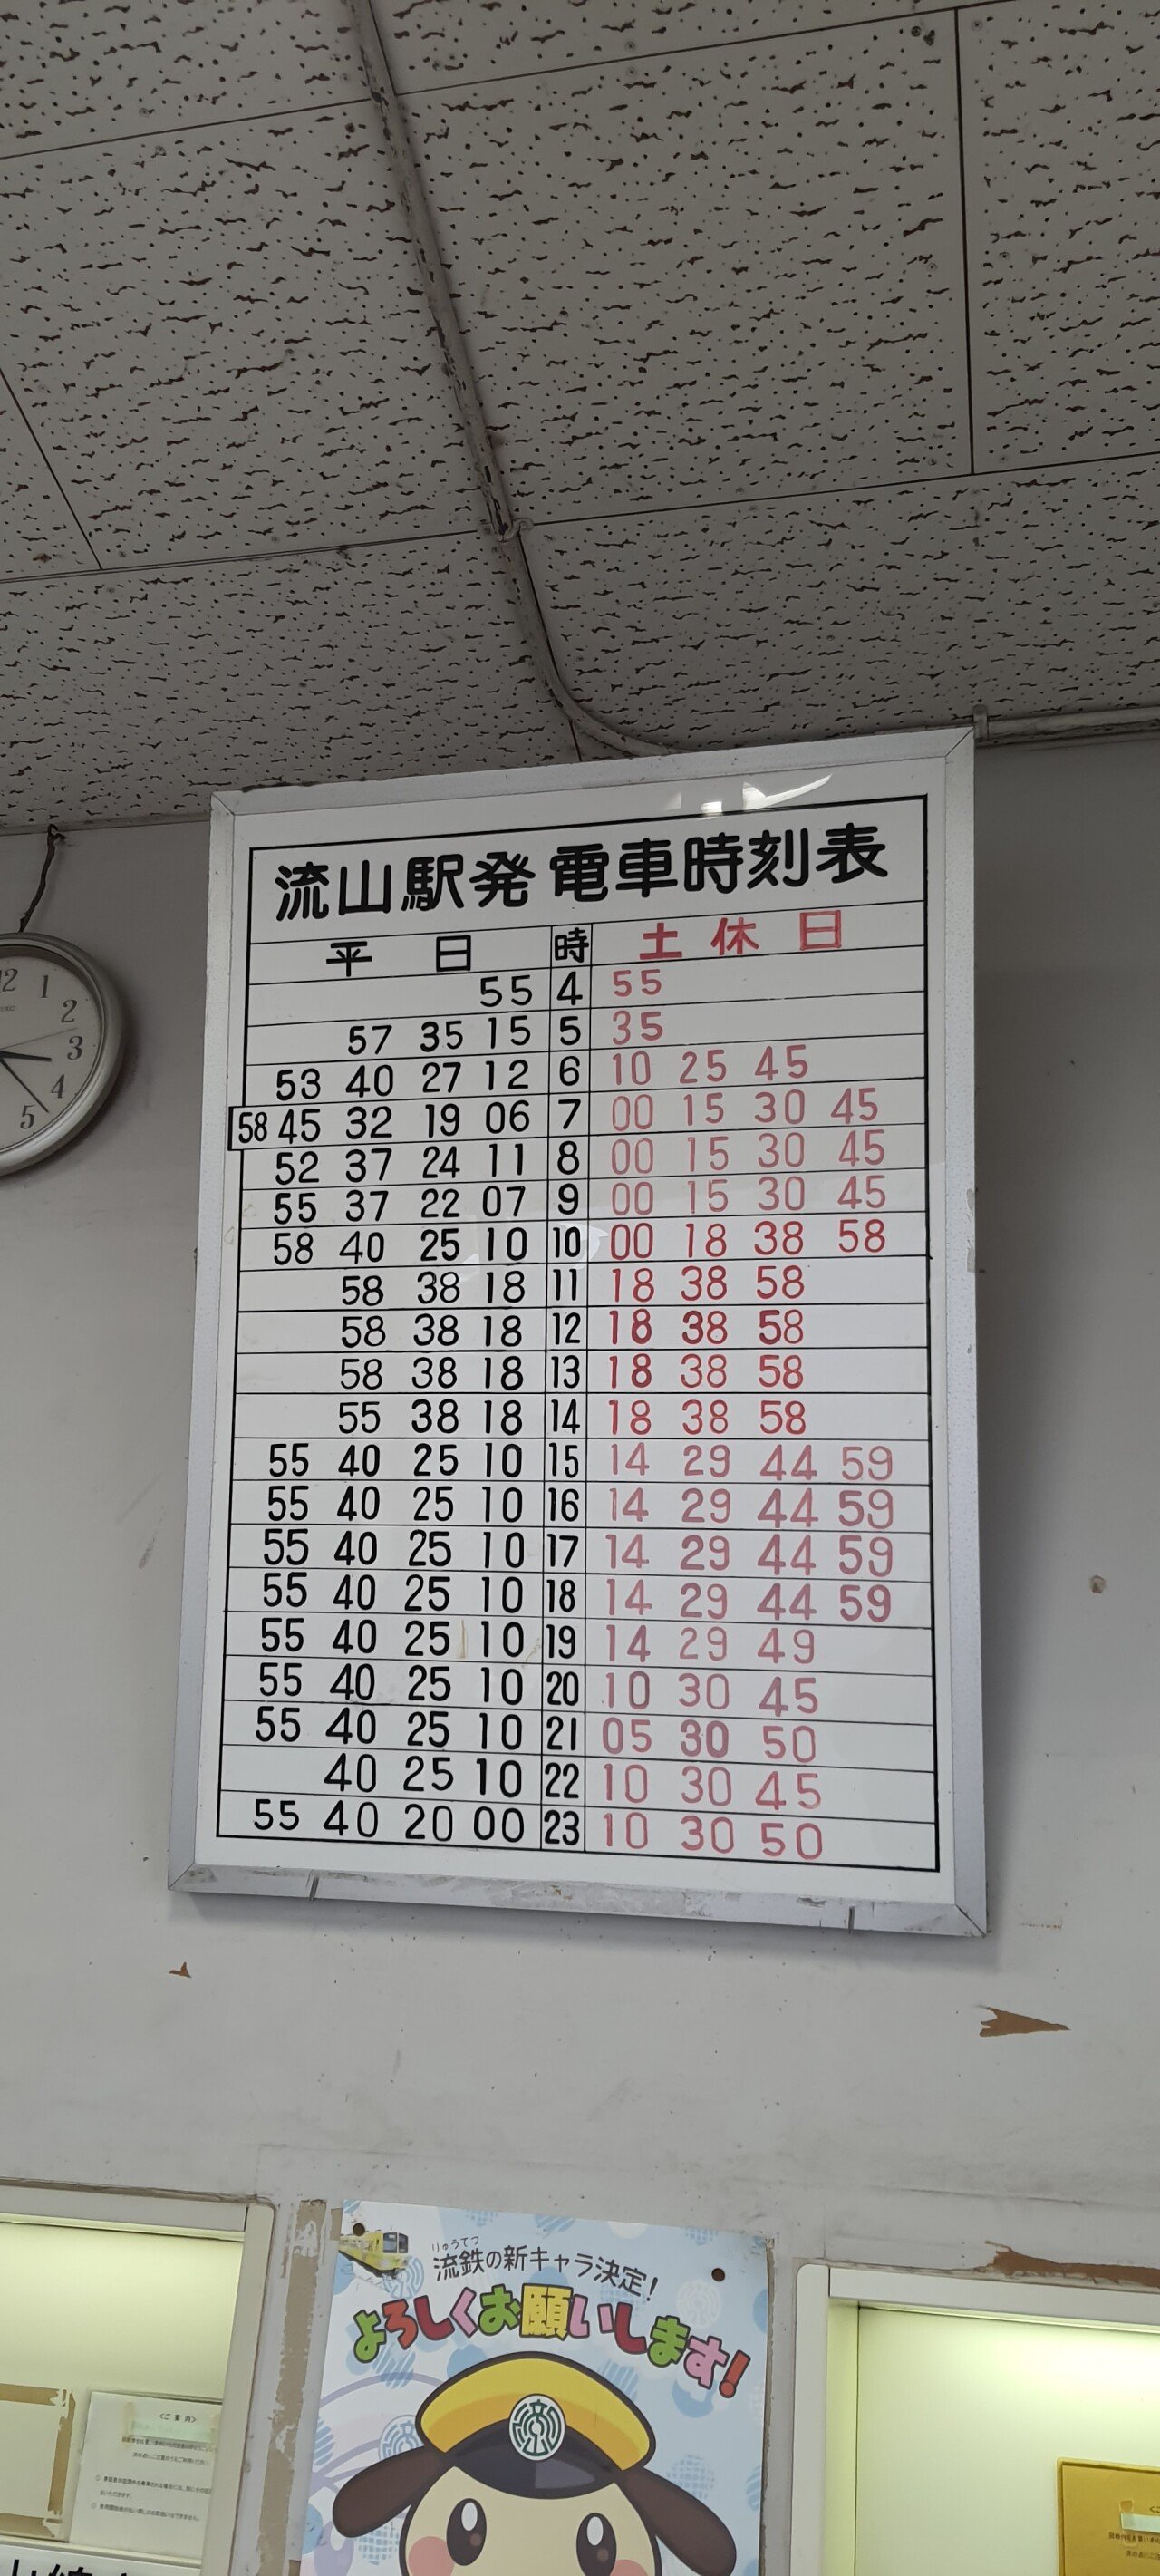 流山駅発 電車時刻表
平日 時 土休日
55 4 55
57 35 15 5 35
53 40 27 12 6 10 25 45
58 45 32 19 06 7 00 15 30 45
52 37 24 11 8 00 15 30 45
55 37 22 07 9 00 15 30 45
58 40 25 10 10 00 18 38 58
58 38 18 11 18 38 58
58 38 18 12 18 38 58
58 38 18 13 18 38 58
55 38 18 14 18 38 58
55 40 25 10 15 14 29 44 59
55 40 25 10 16 14 29 44 59
55 40 25 10 17 14 29 44 59
55 40 25 10 18 14 29 44 59
55 40 25 10 19 14 29 49
55 40 25 10 20 10 30 45
55 40 25 10 21 05 30 50
40 25 10 22 10 30 45
55 40 20 00 23 10 30 50
12
1
2
3
4
5
りゅうてつ
流鉄の新キャラ決定!
よろしくお願いします!
<ご案内>